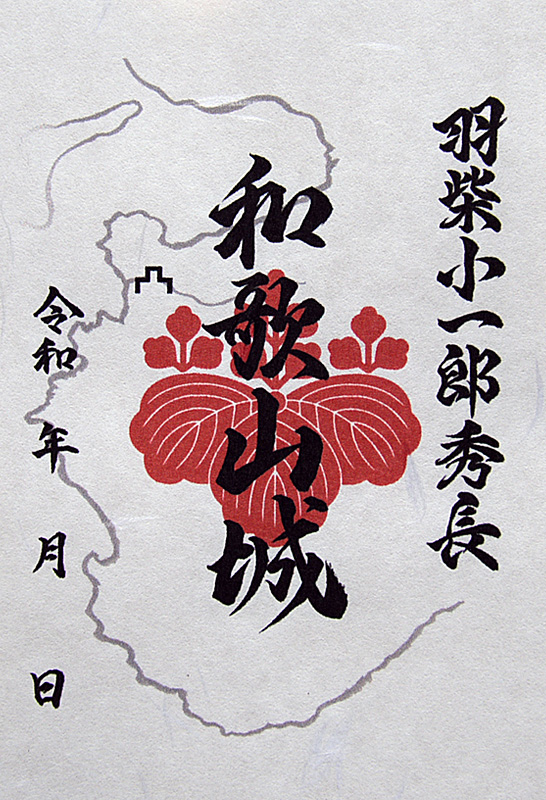 羽柴小一郎秀長
和歌山城
令和 年 月 日